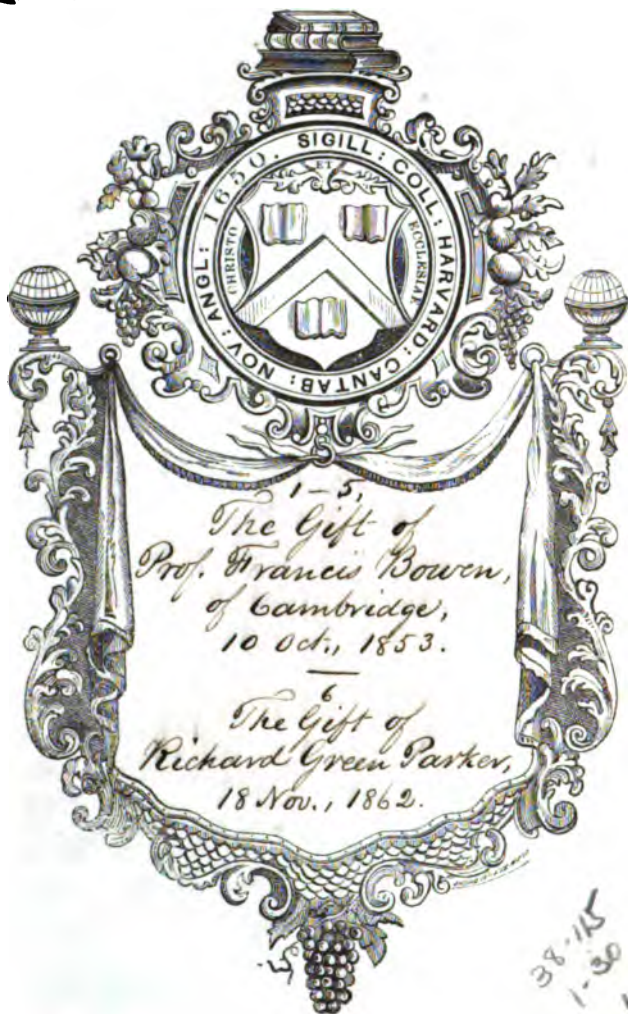 SIGILL: COLL: HARVARD: CANTAB: NOV: ANGL: 1650.
ET
CHRISTO
ECCLESIAE
1–5,
The Gift of
Prof. Francis Bowen,
of Cambridge,
10 Oct., 1853.
6
The Gift of
Richard Green Parker,
18 Nov., 1862.
38.115
1.30